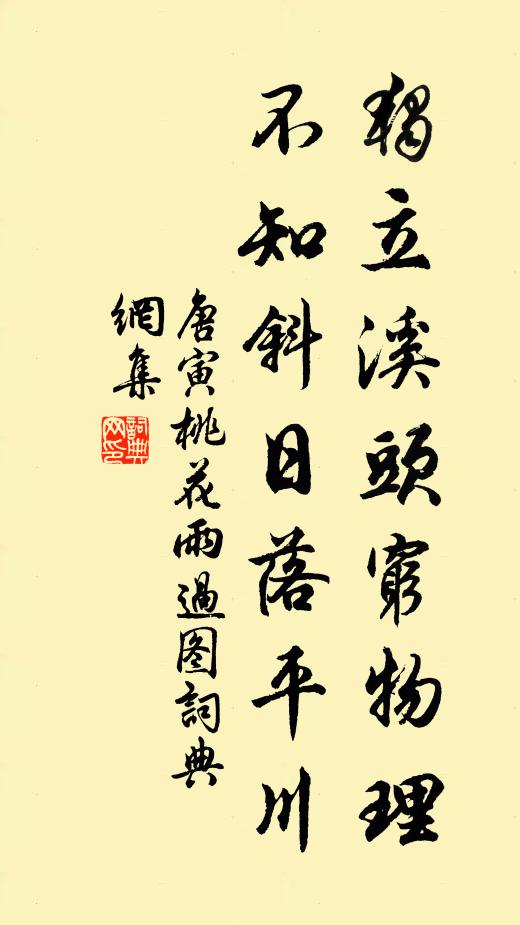 獨立溪頭窮物理
不知斜日落平川
唐寅桃花雨過图詞典
網集
詞典
网印